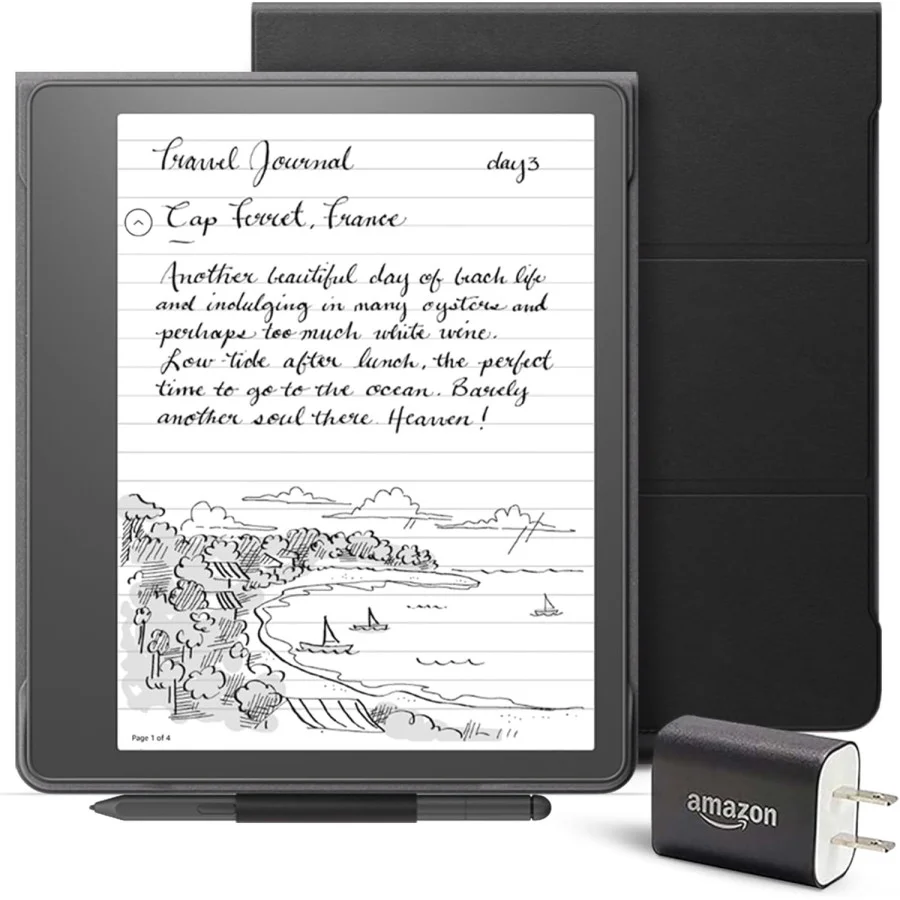 Travel Journal day 3
Cap Ferret, France
Another beautiful day of beach life
and indulging in many oysters and
perhaps too much white wine.
Low tide after lunch, the perfect
time to go to the ocean. Barely
another soul there. Heaven!
Page 1 of 4
amazon